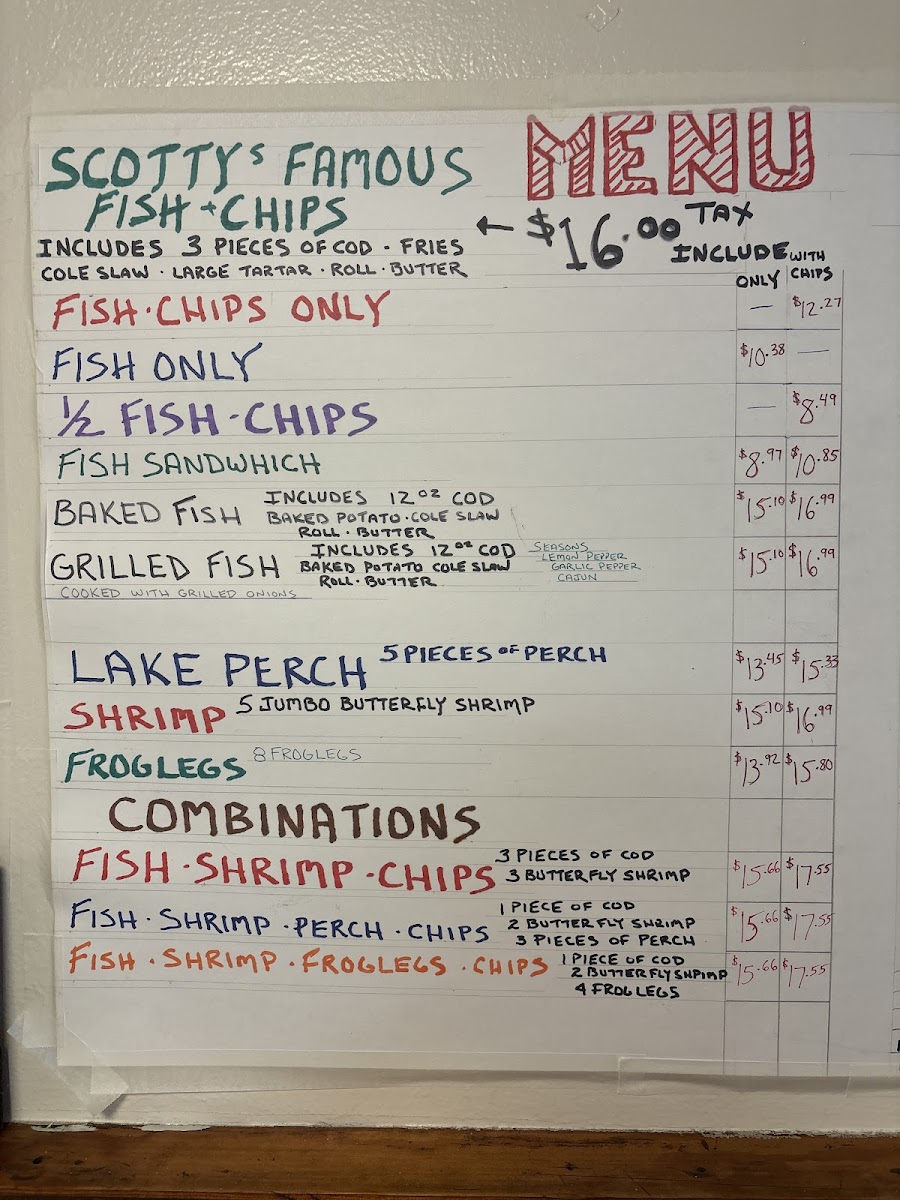 SCOTTYS FAMOUS
FISH + CHIPS
MENU
← $16.00 TAX
INCLUDE
INCLUDES 3 PIECES OF COD · FRIES
COLE SLAW · LARGE TARTAR · ROLL · BUTTER
ONLY WITH CHIPS
FISH · CHIPS ONLY — $12.27
FISH ONLY $10.38 —
1/2 FISH · CHIPS — $8.49
FISH SANDWHICH $8.97 $10.85
BAKED FISH INCLUDES 12 OZ COD $15.10 $16.99
BAKED POTATO · COLE SLAW
ROLL · BUTTER
GRILLED FISH INCLUDES 12 OZ COD $15.10 $16.99
BAKED POTATO COLE SLAW
ROLL · BUTTER
SEASONS
LEMON PEPPER
GARLIC PEPPER
CAJUN
COOKED WITH GRILLED ONIONS
LAKE PERCH 5 PIECES OF PERCH $13.45 $15.33
SHRIMP 5 JUMBO BUTTERFLY SHRIMP $15.10 $16.99
FROGLEGS 8 FROGLEGS $13.92 $15.80
COMBINATIONS
FISH · SHRIMP · CHIPS 3 PIECES OF COD $15.66 $17.55
3 BUTTERFLY SHRIMP
FISH · SHRIMP · PERCH · CHIPS 1 PIECE OF COD $15.66 $17.55
2 BUTTERFLY SHRIMP
3 PIECES OF PERCH
FISH · SHRIMP · FROGLEGS · CHIPS 1 PIECE OF COD $15.66 $17.55
2 BUTTERFLY SHPIMP
4 FROGLEGS